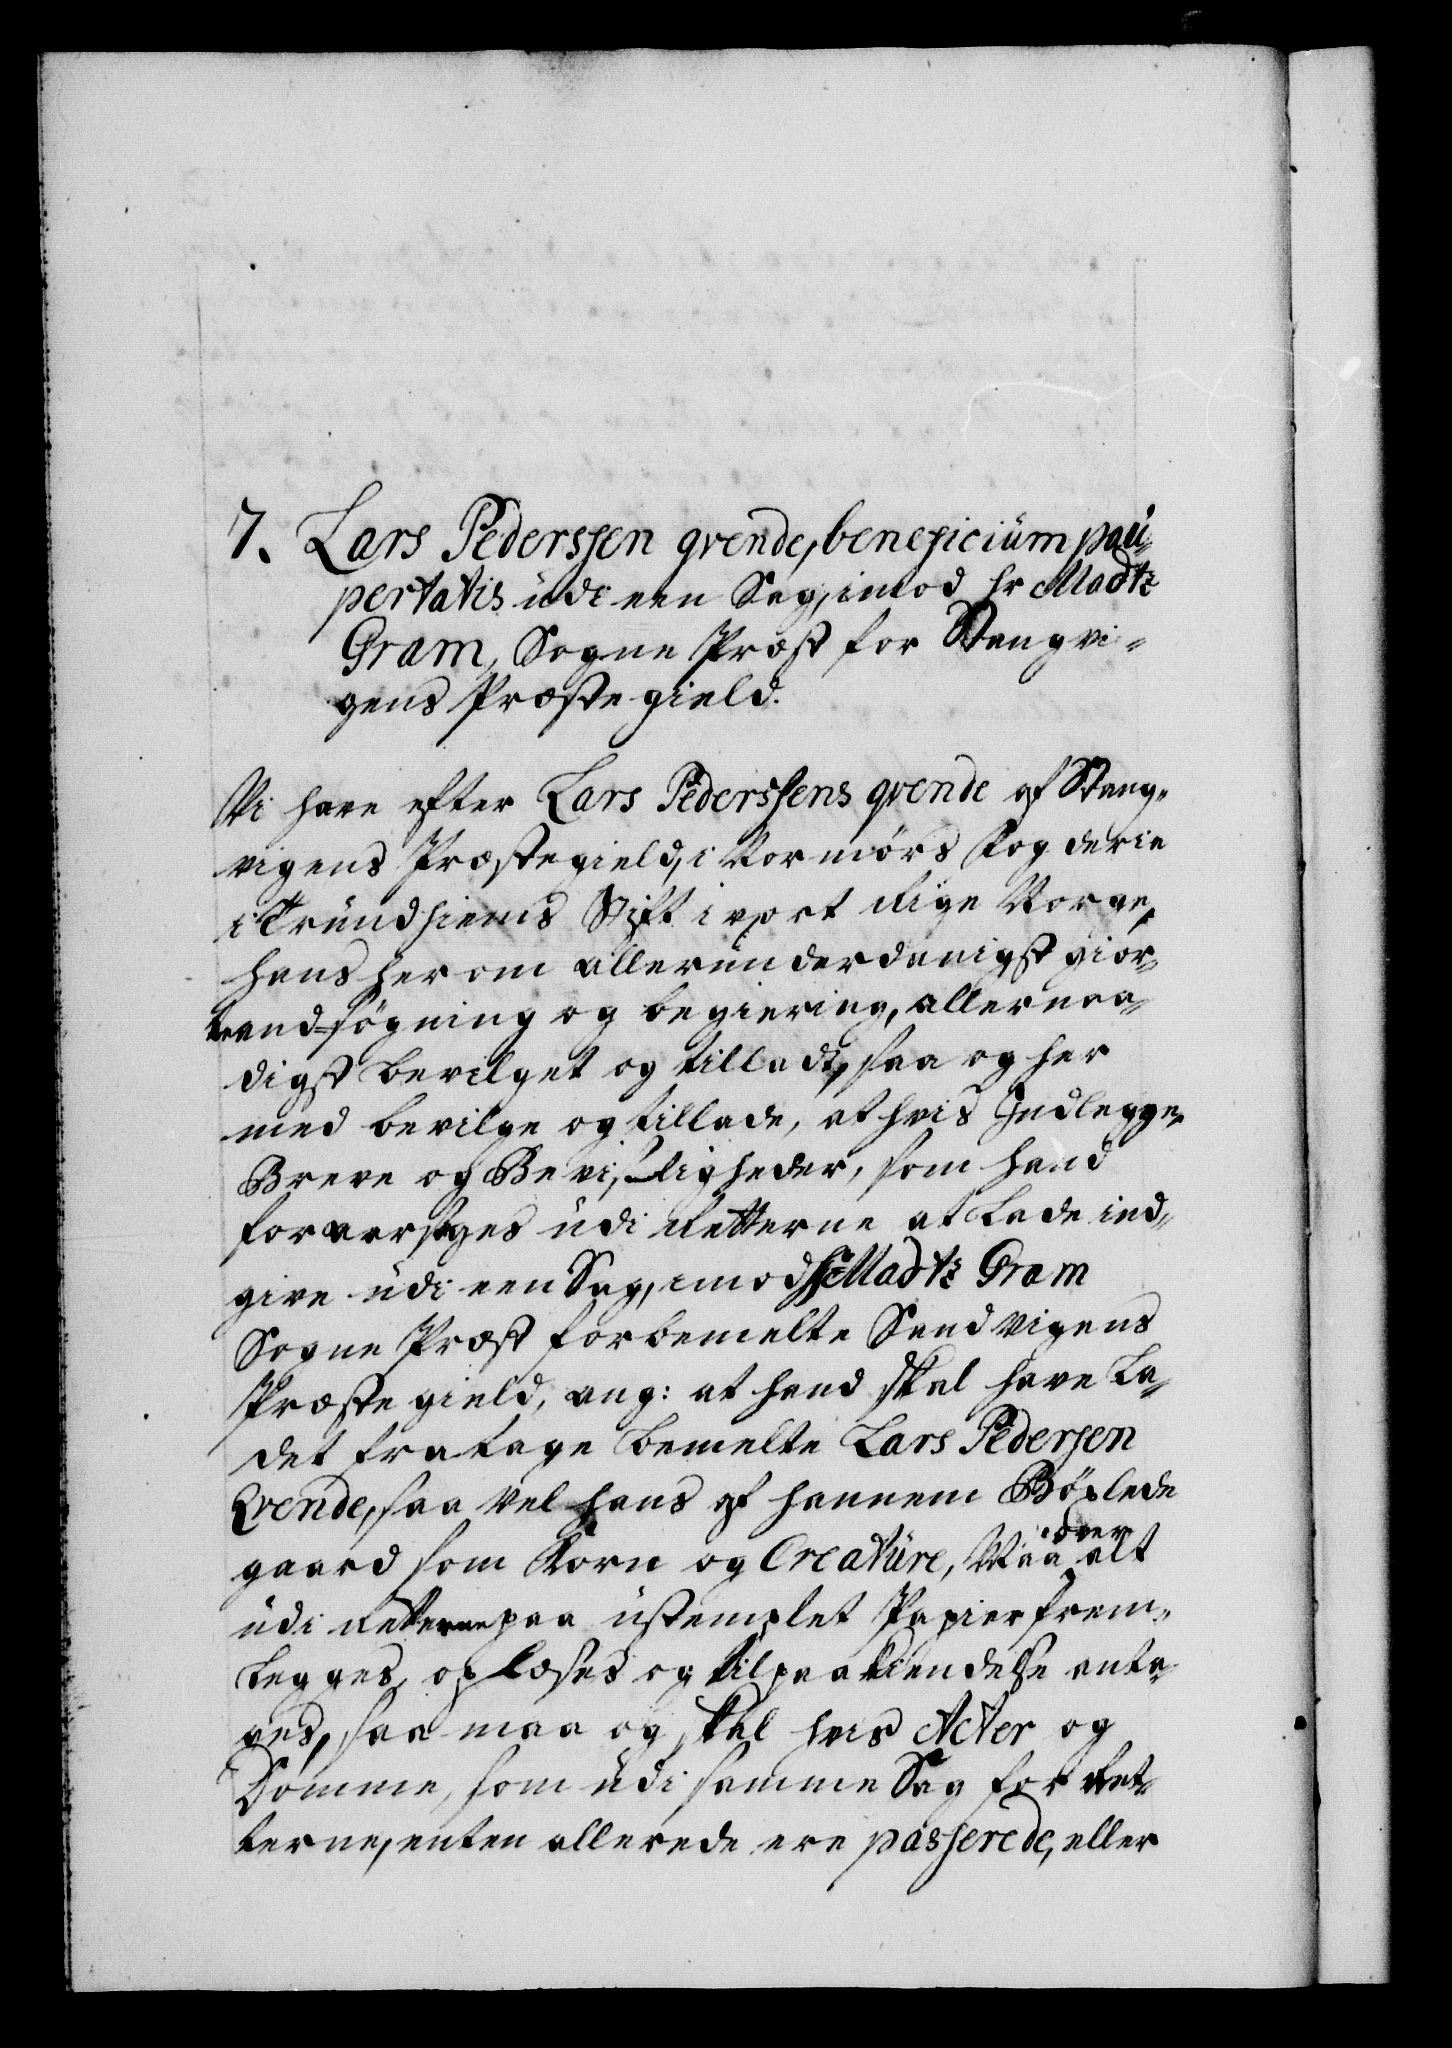 7. Lars Pederssen qvende, beneficium pau-
pertatis udi een Sag, imod hr Madtz
Gram, Sogne Præst for Stangvi-
gens Præstegield.
Vi have efter Lars Pederssens qvende af Stang-
vigens Præstegield, i Normørs Fogderie
i Trundhiems Stift i vort Rige Norge,
hans her om allerunderdanigst giør-
te andsøgning og begiering, allernaa-
digst bevilget og tilladt, saa og her
med bevilge og tillade, at hvis Indlegge,
Breve og Bevisligheder, som hand
foraarsages udi Retterne at lade ind-
give udi een Sag, imod hr Madtz Gram
Sogne Præst for bemelte Sandvigens
Præstegield, ang: at hand skal have la-
det fratage bemelte Lars Pedersen
Qvende, saa vel hans af hannem Böxlede
gaard som Korn og Creature, Maa over alt
udi Retterne paa ustemplet Papier frem-
legges, oplæses og til paakiendelse anta-
ges, saa maa og skal hvis Acter og
Domme, som udi samme Sag for Ret-
terne, enten allerede ere passerede, eller